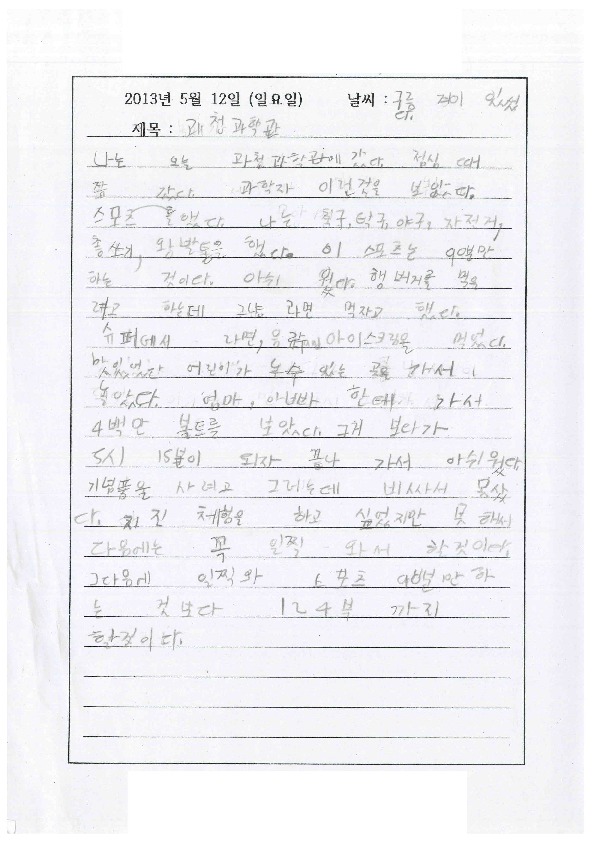 2013년 5월 12일 (일요일) 날씨 : 구름 적이 있었
다.
제목 : 과첨과학관
나는 오늘 과천과학관에 갔다. 점심 때
쯤 갔다. 과학자 이런것을 보았다.
스포츠 를했다. 나는 축구, 탁구, 야구, 자전거,
총쏘기, 왕발통을 했다. 이 스포츠는 9명만
하는 것이다. 아쉬 웠다. 햄버거를 먹을
려고 하는데 그냥 라면 먹자고 했다.
슈퍼에서 라면, 음료수 아이스크림을 먹었다.
맛있었다 어린이가 놀수 있는 곳을 가서
놀았다. 엄마, 아빠 한테 가서
4백만 볼트를 보았다. 그거 보다가
5시 15분이 되자 끝나 가서 아쉬웠다
기념품을 사려고 그러는데 비싸서 못샀
다. 지진 체험을 하고 싶었지만 못 해서
다음에는 꼭 일찍 와서 할것이다.
그다음에 일찍와 스포츠 9번만 하
는 것보다 124부 까지
할것이다.